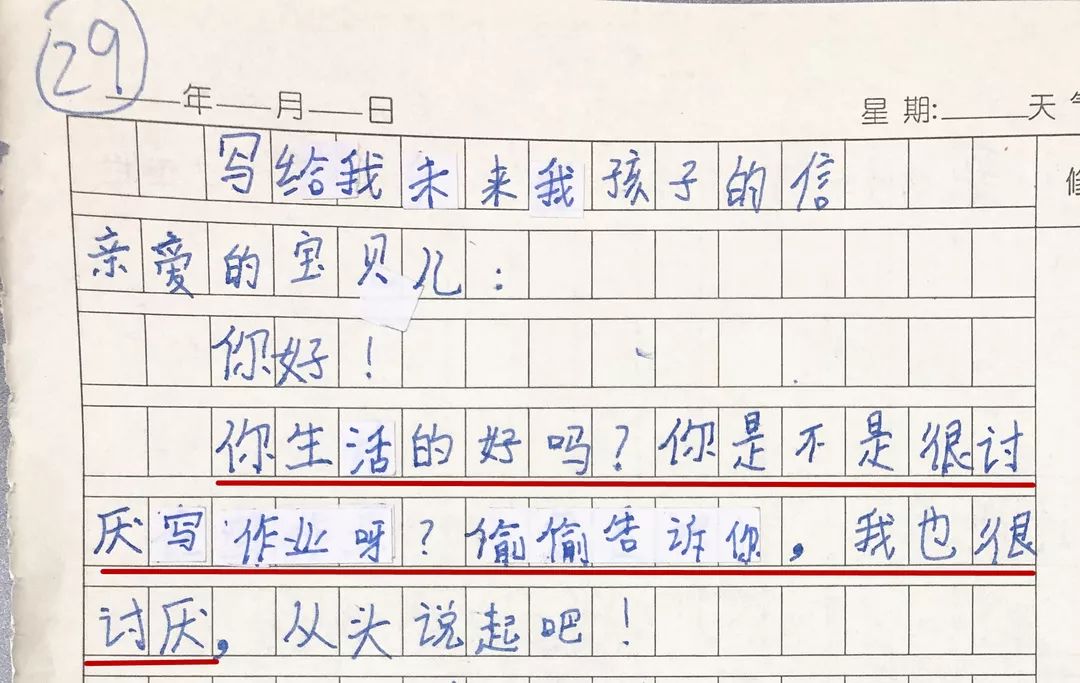 29
年 月 日 星期: 天
写给我未来我孩子的信
亲爱的宝贝儿：
你好！
你生活的好吗？你是不是很讨
厌写作业呀？偷偷告诉你，我也很
讨厌，从头说起吧！